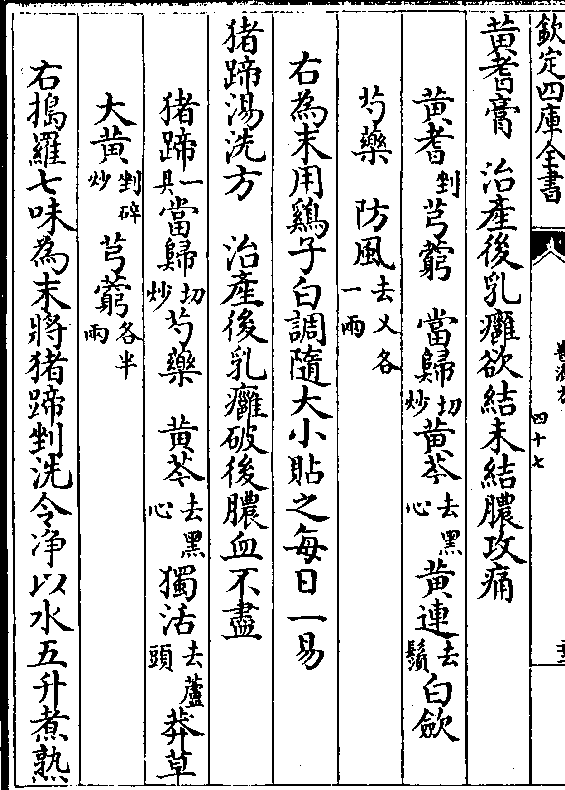 欽定四庫全書
普濟方
四十七
黄耆膏　治產後乳癰欲結未結膿攻痛
黄耆剉　芎藭　當歸切炒　黄芩去黑心　黄連去鬚　白蘞
芍藥　防風去乂各一兩
右為末用鷄子白調隨大小貼之每日一易
猪蹄湯洗方　治產後乳癰破後膿血不盡
猪蹄一具　當歸切炒　芍藥　黄芩去黑心　獨活去蘆頭　莽草
大黄剉碎炒　芎藭各半兩
右搗羅七味為末將猪蹄剉洗令净以水五升煮熟